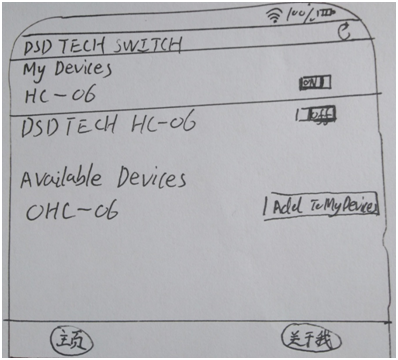 100%
DSD TECH SWITCH
My Devices
HC-06 ON
DSD TECH HC-06 off
Available Devices
OHC-06 Add To My Devices
主页 关于我